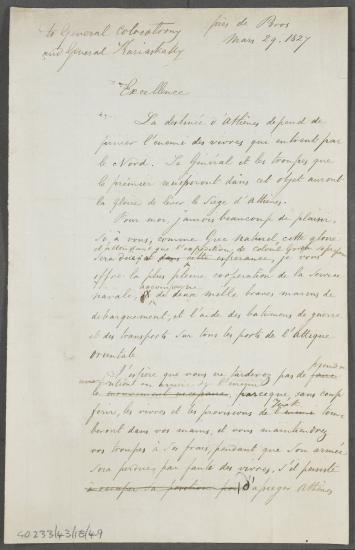 to General Colocotrony
and General Karaiskaky
près de Poros
Mars 29. 1827
Excellence
La destinée d'Athènes depend de
priver l'ennemi des vivres que entrent par
le Nord. Le Général et les troupes que
le premier reussiront dans cet objet auront
la gloire de lever le Siege d'Athènes.
Pour moi, j'aurois beaucoup de plaisir,
Si à vous, comme Grec Naturel, cette gloire
et attendant que l'expedition, de colonel Gordon
Sera dans cette esperance, je vous
offre la plus pleine cooperation de la Service
navale, de deux mille braves marins de
debarquement, et l'aide des batimens de guerre
et des transports Sur tous les ports de l'Attique
orientale.
J'espère que vous ne tarderez pas de
le mouvement necessaire, parceque, sans coup
ferire, les vivres et les provisions de l'ennemi tom-
beront dans vos mains, et vous maintiendrez
vos troupes à Ses frais, pendant que Son armée
Sera perdue, par faute des vivres, S'il persiste
d'assieger Athènes
CO 233/43/18/49